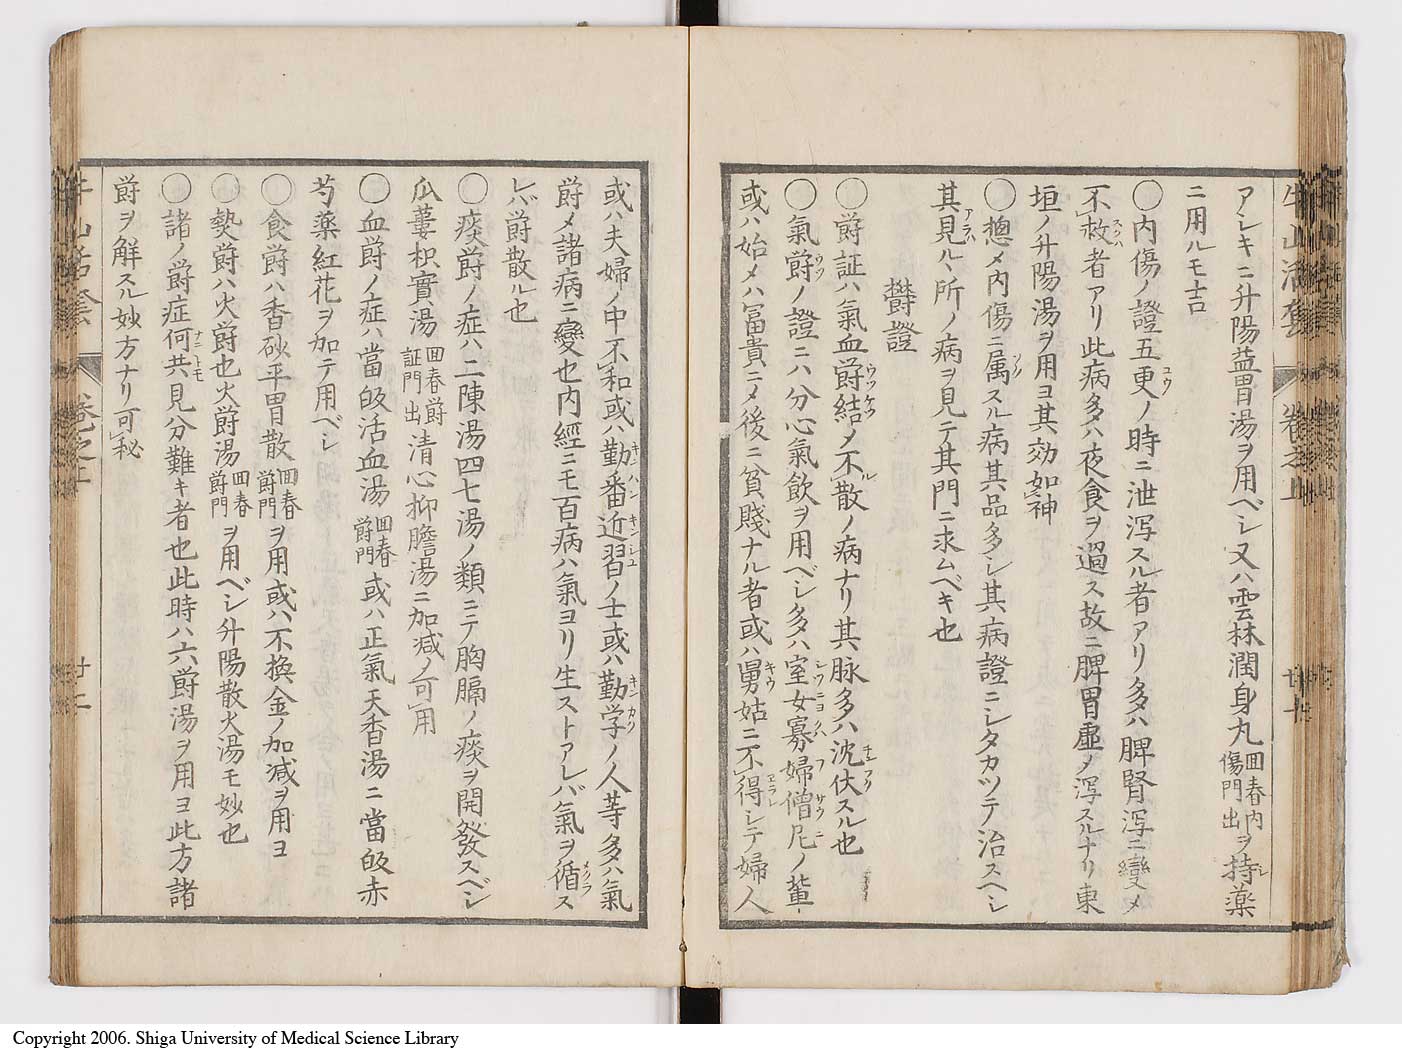 牛山活套 卷之上 廿一
アレキニ升陽益胃湯ヲ用ベシ又ハ雲林潤身丸 回春内傷門出 ヲ持薬
ニ用ルモ吉
〇内傷ノ證五更ノ時ニ泄瀉スル者アリ多ハ脾腎瀉ニ變メ
不救者アリ此病多ハ夜食ヲ過ス故ニ脾胃虚ノ瀉スルナリ東
垣ノ升陽湯ヲ用ヨ其効如神
〇摠メ内傷ニ属スル病其品多シ其病證ニシタカツテ治スヘシ
其見ルヽ所ノ病ヲ見テ其門ニ求ムベキ也
欝證
〇欝証ハ氣血欝結メ不散ノ病ナリ其脉多ハ沈伏スル也
〇氣欝ノ證ニハ分心氣飲ヲ用ベシ多ハ室女寡婦僧尼ノ輩
或ハ始メハ冨貴ニメ後ニ貧賤ナル者或ハ舅姑ニ不得シテ婦人
或ハ夫婦ノ中不和或ハ勤番近習ノ士或ハ勤学ノ人等多ハ氣
欝メ諸病ニ變也内經ニモ百病ハ氣ヨリ生ストアレバ氣ヲ循ス
レバ欝散ル也
〇痰欝ノ症ハ二陳湯四七湯ノ類ニテ胸膈ノ痰ヲ開發スベシ
瓜蔞枳實湯 回春欝証門出 清心抑膽湯ニ加减ノ可用
〇血欝ノ症ハ當皈活血湯 回春欝門 或ハ正氣天香湯ニ當皈赤
芍薬紅花ヲ加テ用ベシ
〇食欝ハ香砂平胃散 回春欝門 ヲ用或ハ不換金ノ加减ヲ用ヨ
〇熱欝ハ火欝也火欝湯 回春欝門 ヲ用ベシ升陽散火湯モ妙也
〇諸ノ欝症何共見分難キ者也此時ハ六欝湯ヲ用ヨ此方諸
欝ヲ解スル妙方ナリ可秘
牛山活套 卷之上 廿二
Copyright 2006. Shiga University of Medical Science Library